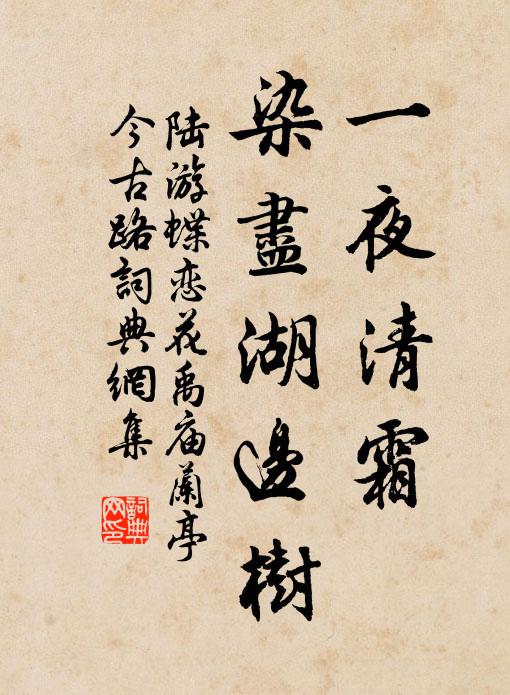 一夜清霜
染盡湖邊樹
陆游蝶恋花禹庙蘭亭
今古路詞典網集
詞典
网印